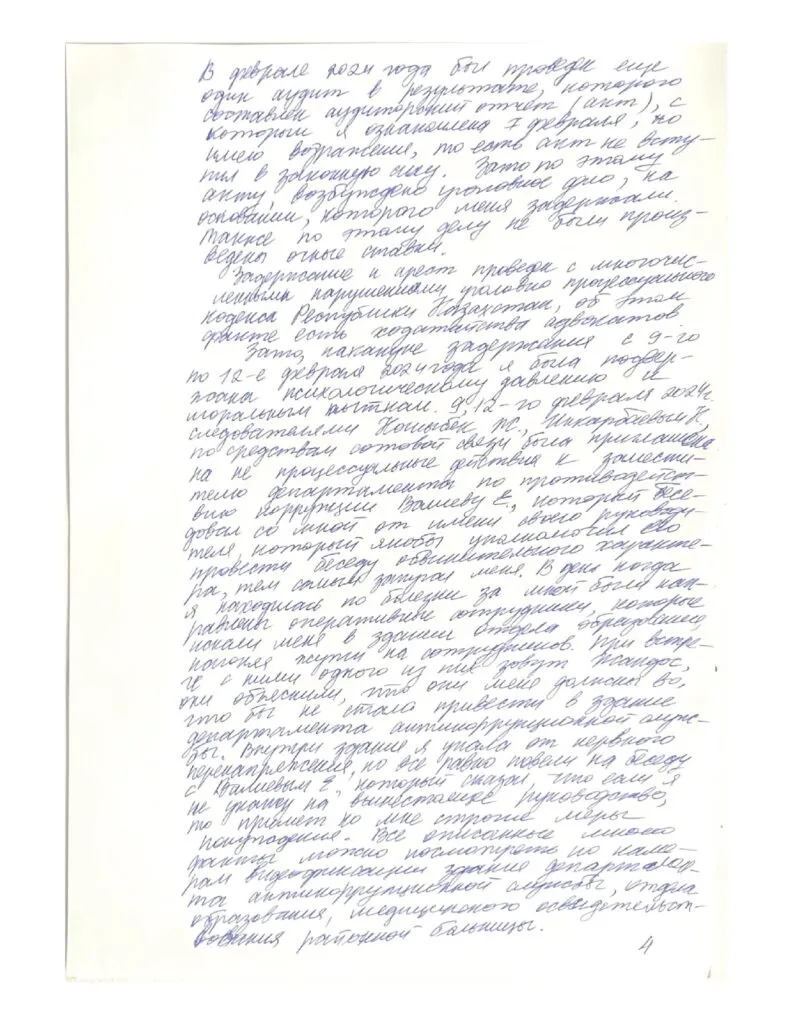 В феврале 2024 года был проведен еще
один аудит в результате, которого
составлен аудиторский отчет (акт), с
которым я ознакомлена 7 февраля, но
имею возражения, то есть акт не всту-
пил в законную силу. Зато по этому
акту, возбуждено уголовное дело, на
основании, которого меня задержали.
Также по этому делу не были произ-
ведены очные ставки.
Задержание и арест проведен с многочис-
ленными нарушениями уголовно процессуального
кодекса Республики Казахстан, об этом
факте есть ходатайства адвокатов.
Зато, накануне задержания с 9-го
по 12-е февраля 2024 года я была подвер-
жена психологическому давлению и
моральным пыткам. 9, 12-го февраля 2024г.
следователями
по средствам сотовой связи была приглашена
на не процессуальные действия к замести-
телю департамента по противодейст-
вию коррупции Валиеву Е., который бесе-
довал со мной от имени своего руководи-
теля, который якобы уполномочил его
провести беседу обвинительного характе-
ра, тем самым запугал меня. В день когда
я находилась по болезни за мной были нап-
равлены оперативные сотрудники, которые
искали меня в здании отдела образования,
нагоняя жути на сотрудников. При встре-
че с ними одного из них зовут Жандос,
они объяснили, что они меня должны во,
что бы не стало привести в здание
департамента антикоррупционной служ-
бы. Внутри здания я упала от нервного
перенапряжения, но все равно повели на беседу
с Валиевым Е., который сказал, что если я
не укажу на вышестоящее руководство,
то примет ко мне строгие меры
наказания. Все описанные мною
факты можно посмотреть по каме-
рам видеофиксации здания департамен-
та антикоррупционной службы, отдела
образования, медицинского освидетельст-
вования районной больницы.
4